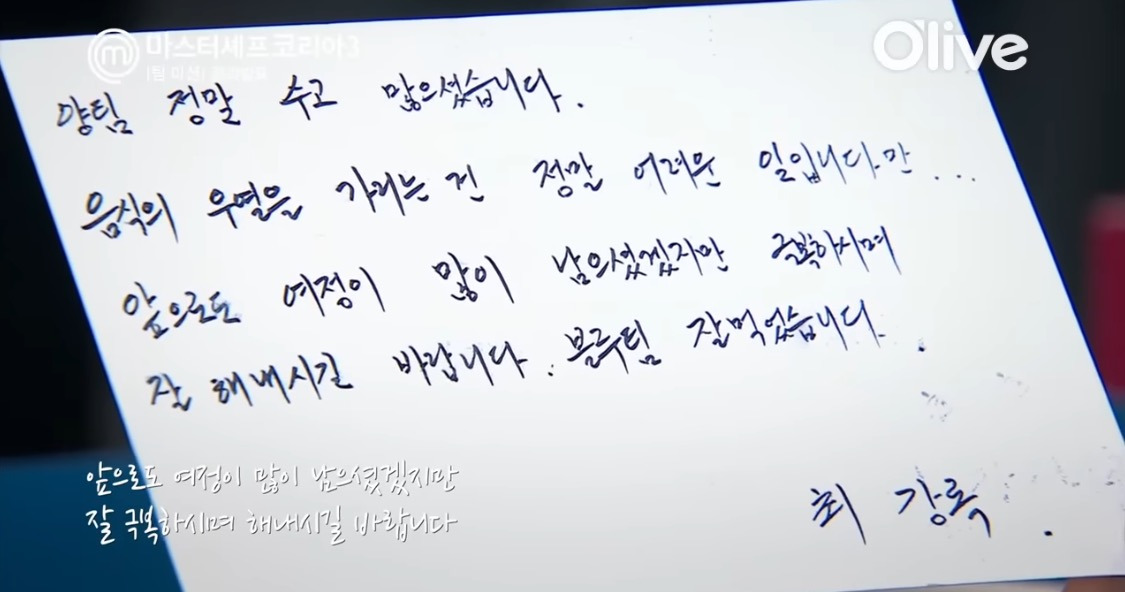 마스터셰프 코리아3
O'live
[팀 미션]
양팀 정말 수고 많으셨습니다.
음식의 우열을 가리는 건 정말 어려운 일입니다만...
앞으로도 여정이 많이 남으셨겠지만 극복하시며
잘 해내시길 바랍니다. 블루팀 잘먹었습니다.
최 강록.
앞으로도 여정이 많이 남으셨겠지만
잘 극복하시며 해내시길 바랍니다